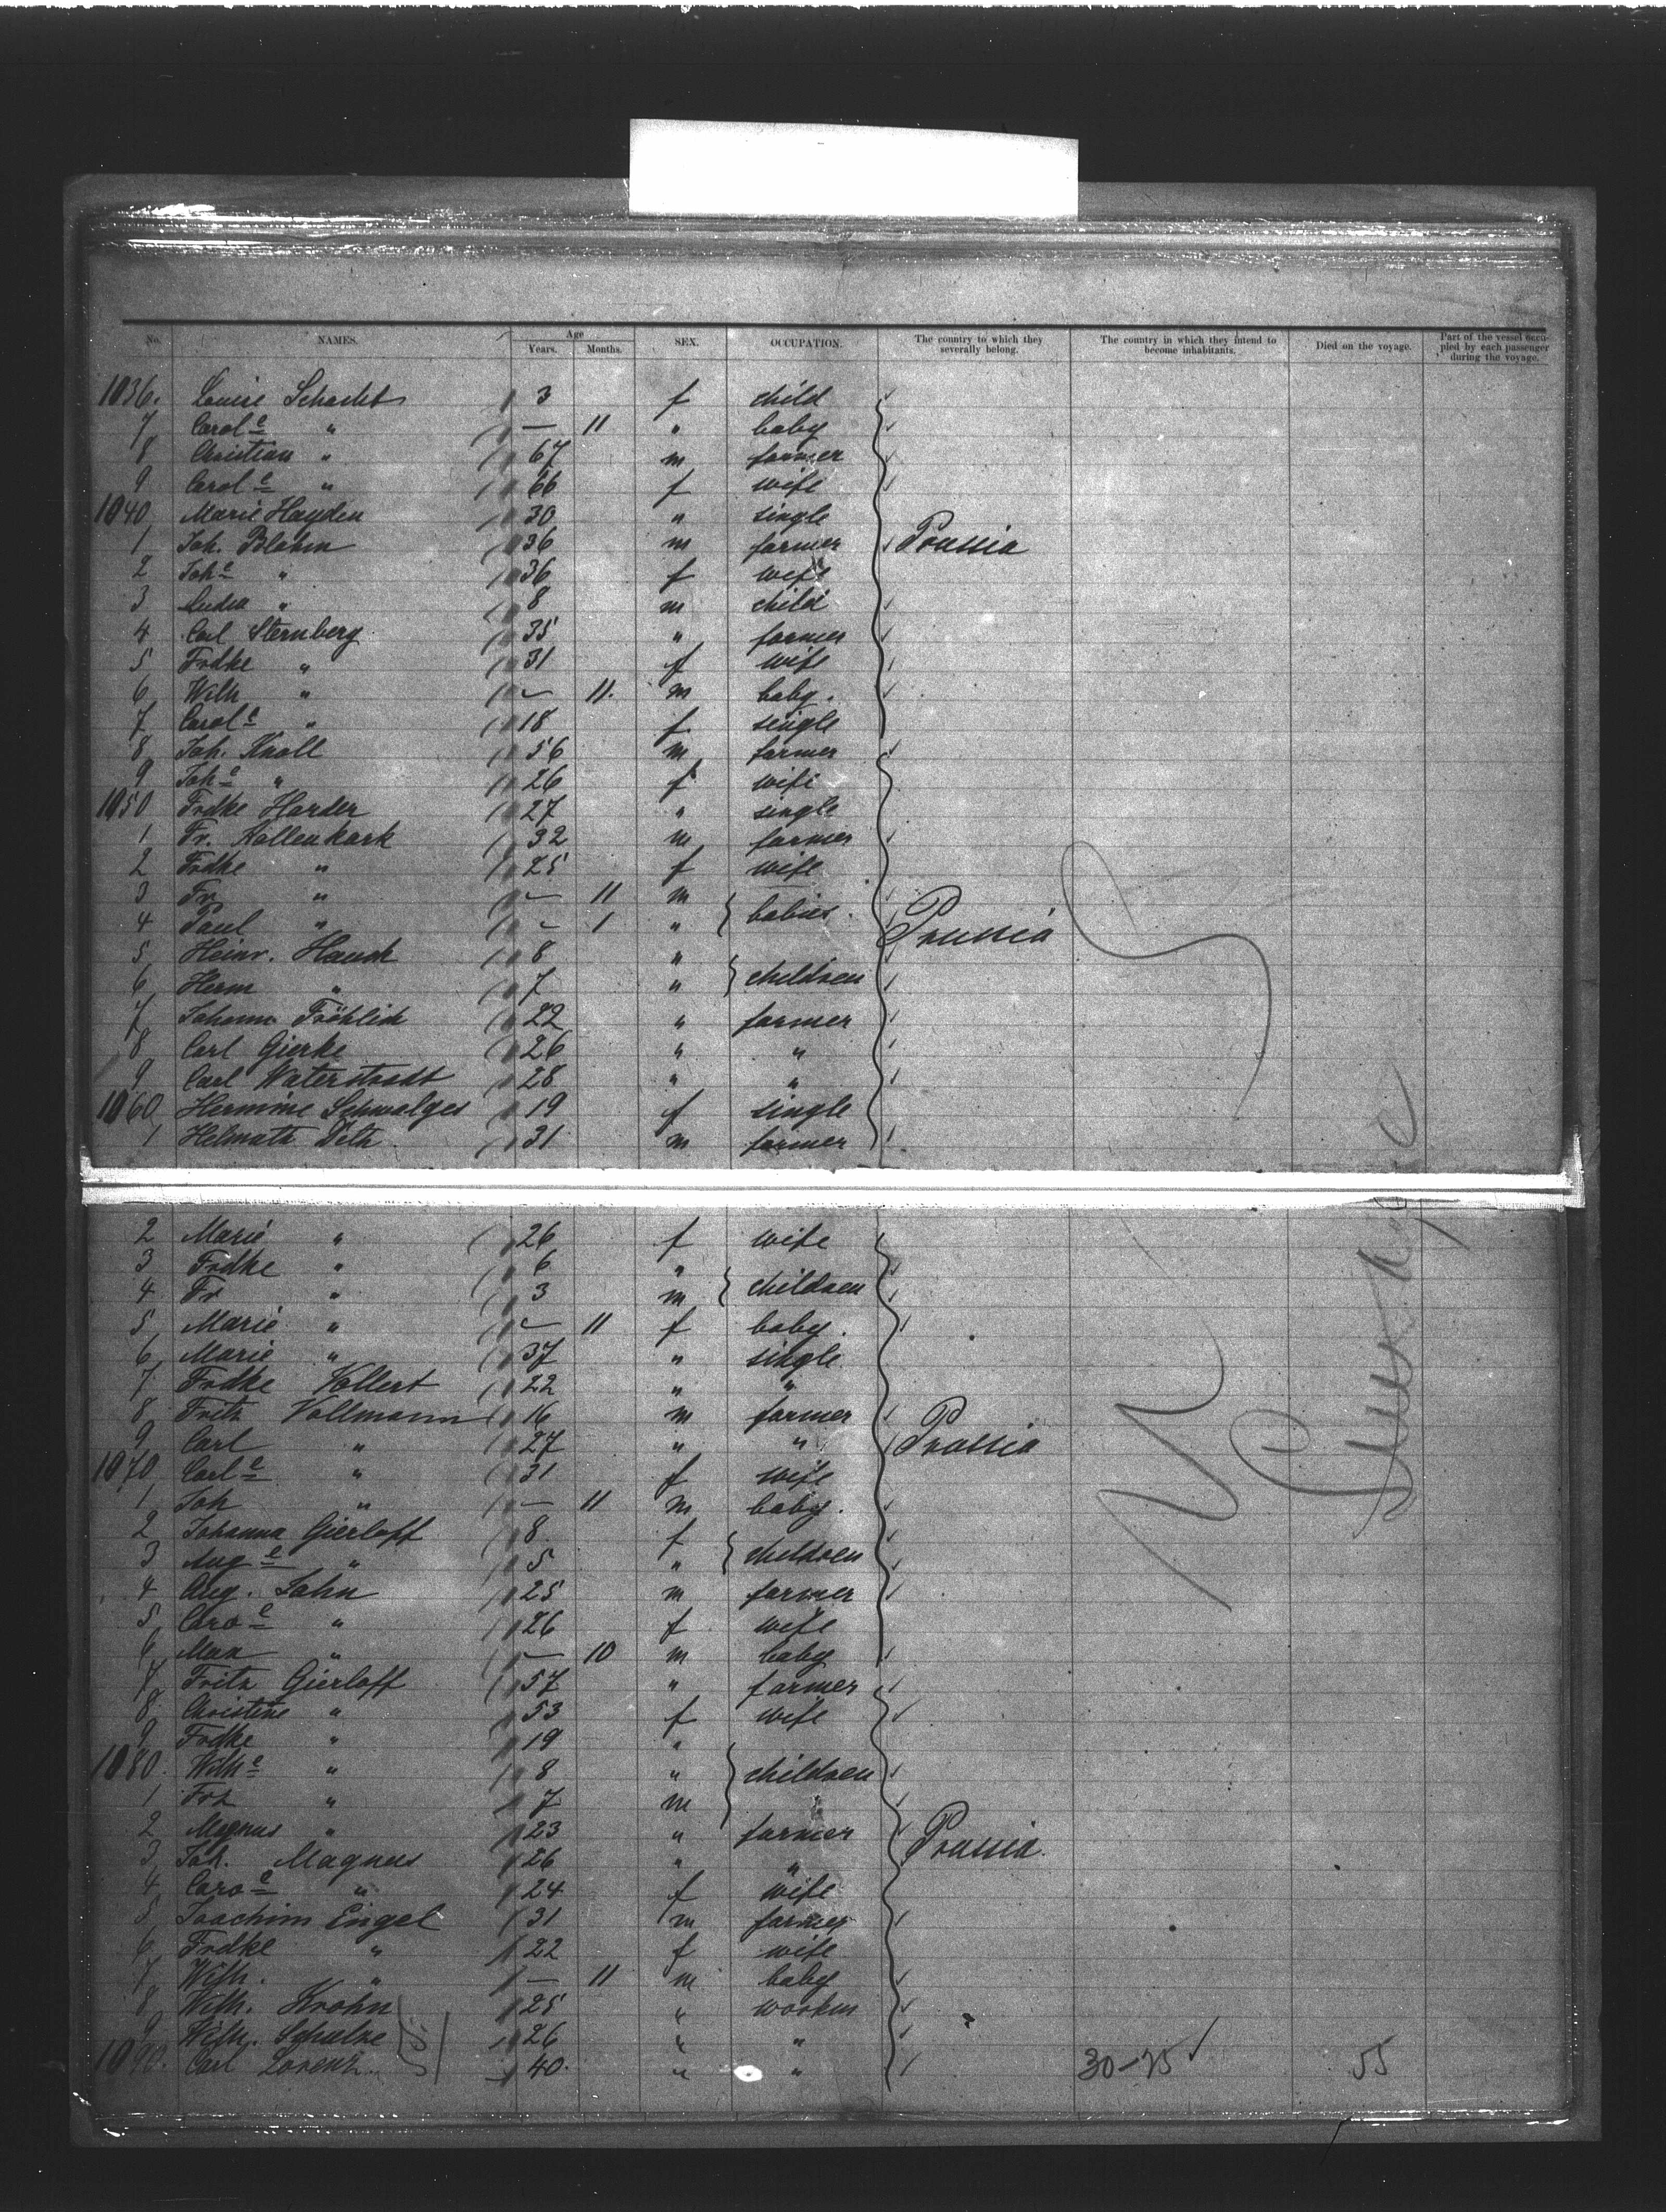 No. NAMES. Age Years. Months. SEX. OCCUPATION. The country to which they severally belong. The country in which they intend to become inhabitants. Died on the voyage. Part of the vessel occupied by each passenger during the voyage.
1036. Louise Schacht 3 f child
7 Carol e " — 11 " baby
8 Christian " 67 m farmer
9 Carol e " 66 f wife
1040 Marie Hayden 30 " single
1 Joh. Blohm 36 m farmer Prussia
2 Joh e " 36 f wife
3 " 8 m child
4 Carl Sternberg 35 " farmer
5 Frdke " 31 f wife
6 Wilh " — 11. m baby.
7 Carol e " 18 f single
8 Joh. Knoll 56 m farmer
9 Joh e " 26 f wife
1050 Frdke Harder 27 " single
1 Fr. Hollenkark 32 m farmer
2 Frdke " 25 f wife
3 Fr " — 11 m babies.
4 Paul " - 1 " Prussia
5 Heinr. Hauch 8 " children
6 Herm " 7 "
7 Johann Fröhlich 22 " farmer
8 Carl Gierke 26 " "
9 Carl Waterstradt 28 " "
1060 Hermine Schwalges 19 f single
1 Helmuth Deth 31 m farmer
2 Marie " 26 f wife
3 Frdke " 6 " children
4 Fr " 3 m
5 Marie " — 11 f baby.
6 Marie " 37 " single
7 Frdke Vollert 22 " "
8 Fritz Vollmann 16 m farmer
9 Carl " 27 " " Prussia
1070 Carl e " 31 f wife
1 Joh " — 11 m baby.
2 Johanna Gierloff 8 f children
3 Aug e " 5 "
4 Aug. Jahn 25 m farmer
5 Caro e " 26 f wife
6 Max " — 10 m baby
7 Fritz Gierloff 57 " farmer
8 Christine " 53 f wife
9 Frdke " 19 "
1080. Wilh e " 8 " children
1 Frz " 7 m "
2 Magnus " 23 " farmer Prussia.
3 Joh. Magnus 26 " "
4 Caro e " 24 f wife
5 Joachim Engel 31 m farmer
6 Frdke " 22 f wife
7 Wilh. " — 11 m baby
8 Wilh. Krohn 25 "
9 Wilh. Schulze 26 " "
1090. Carl Lorenz. 40. " " 30-25 55